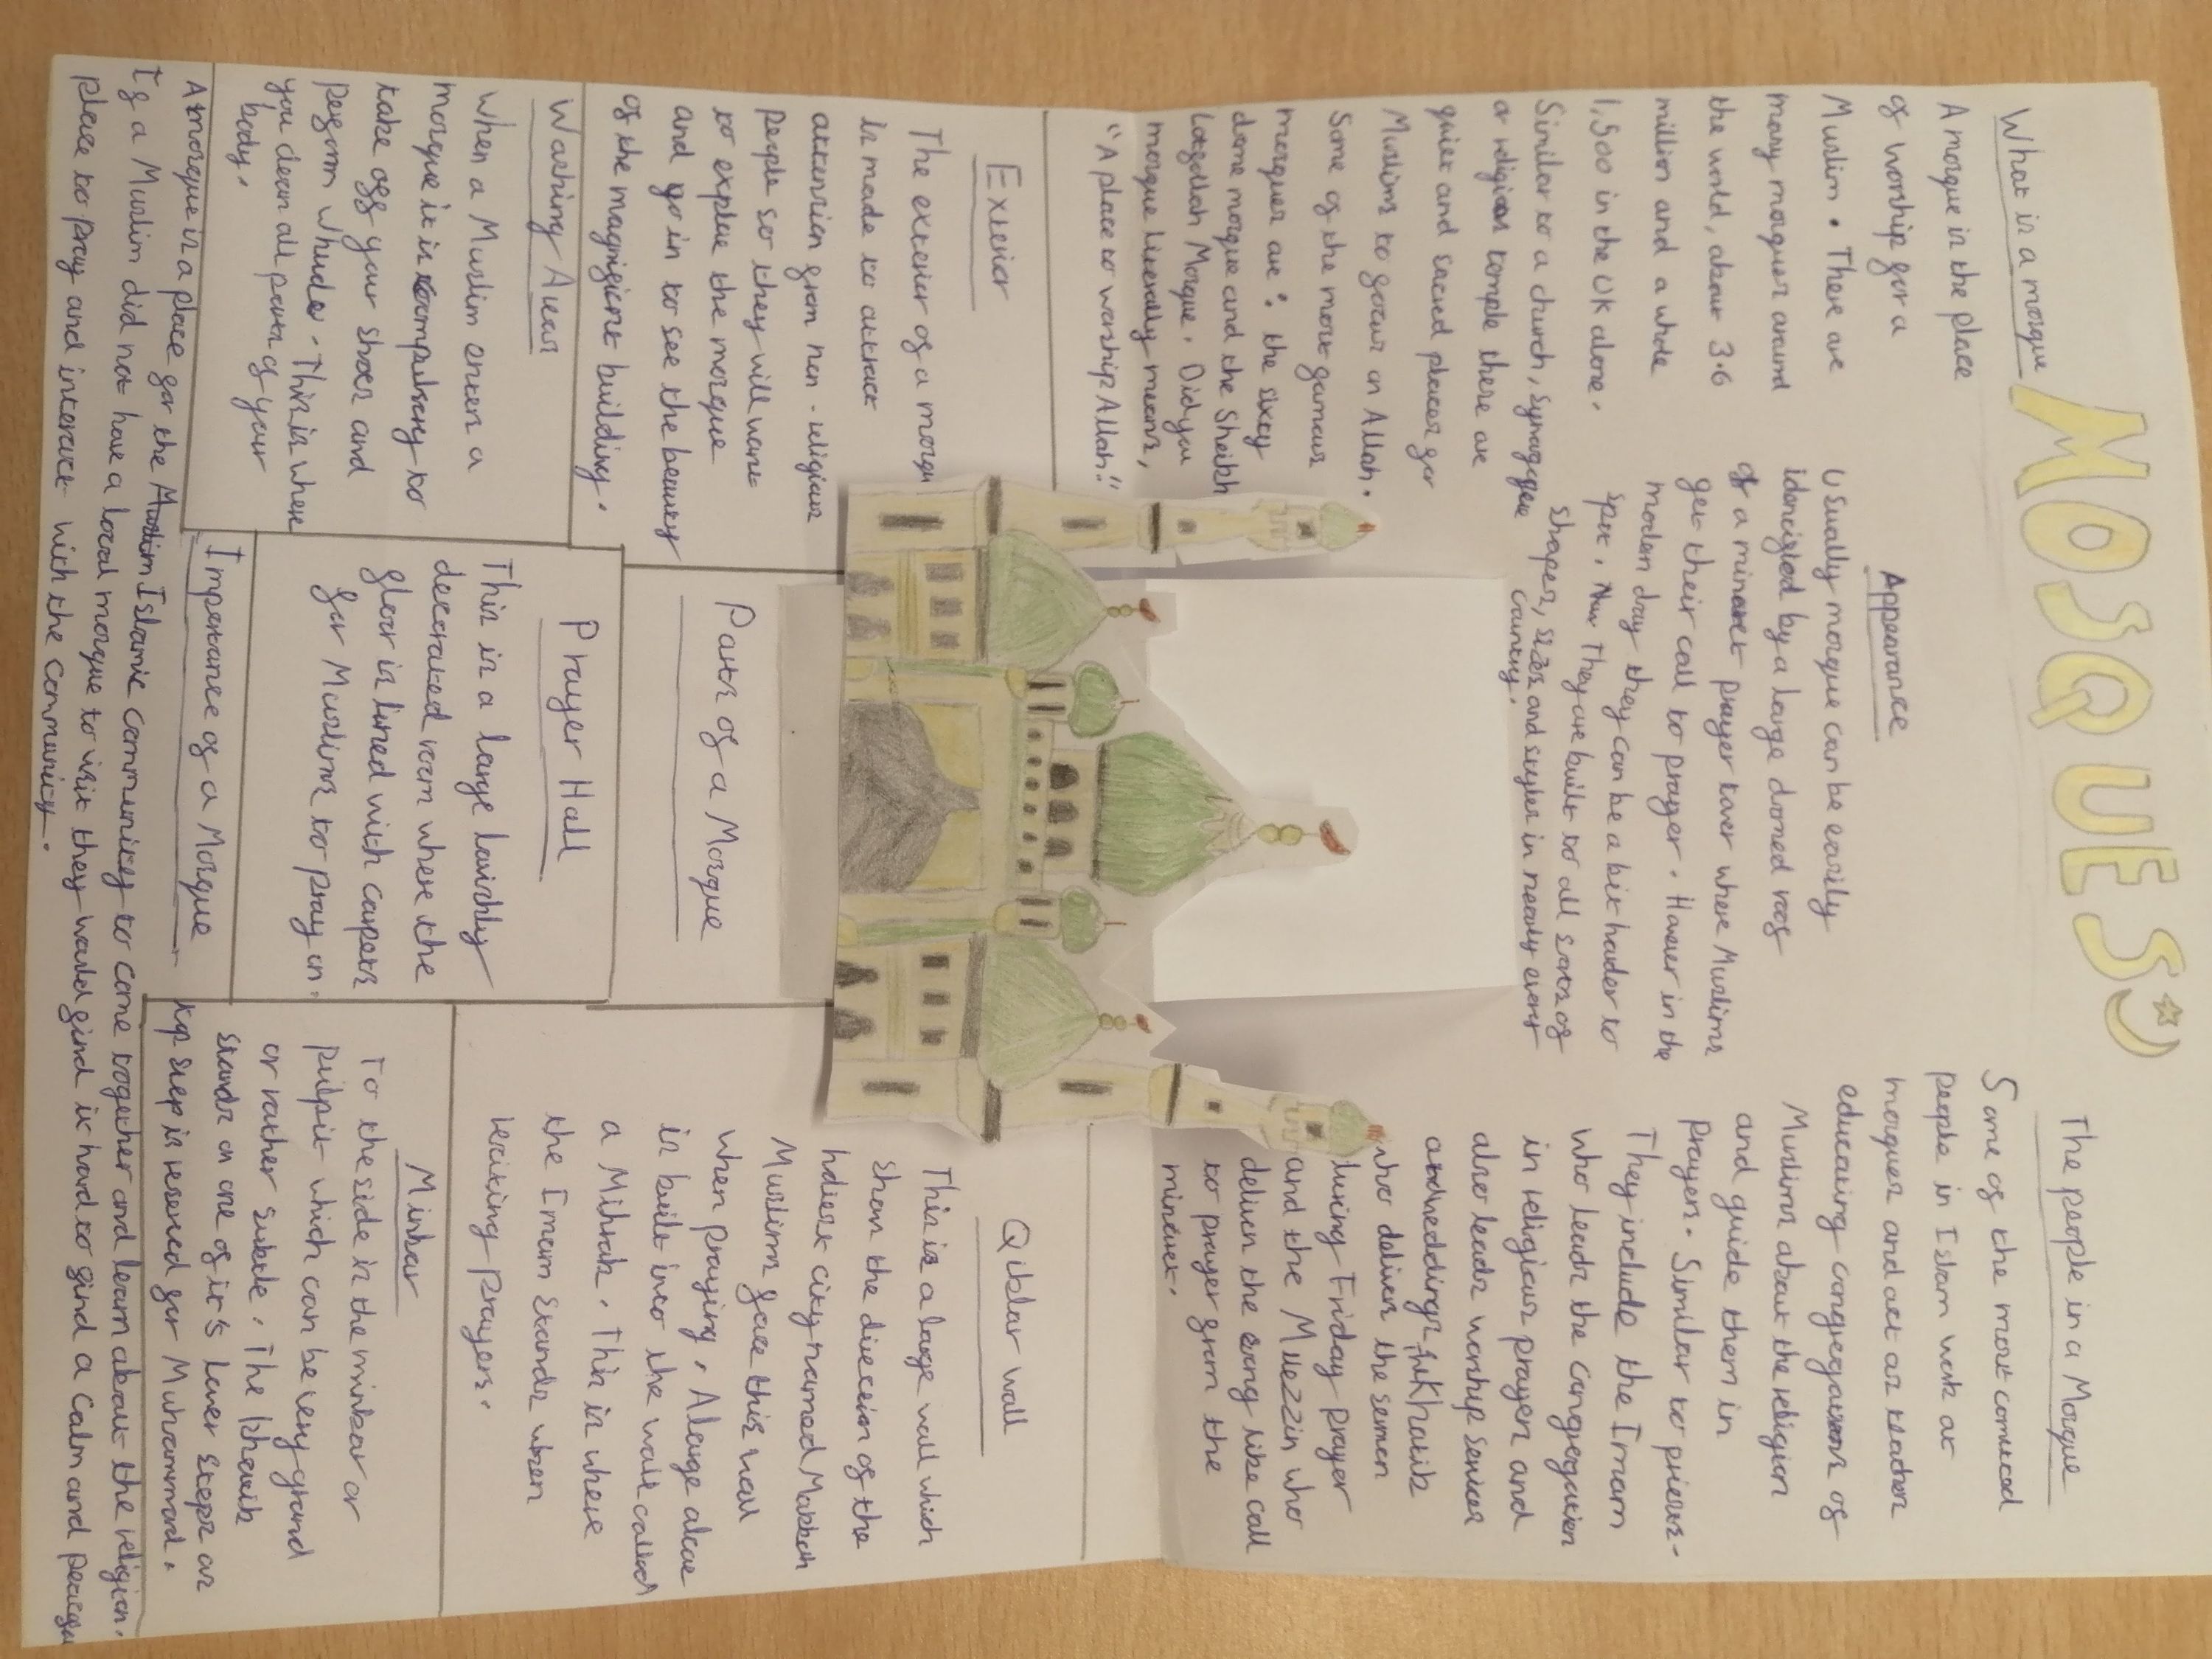 MOSQUES
What is a mosque
A mosque is the place
of worship for a
Muslim. There are
many mosques around
the world, about 3.6
million and a whole
1,500 in the UK alone.
Similar to a church, synagogue
or religious temple there are
quiet and sacred places for
Muslims to focus on Allah.
Some of the most famous
mosques are: the
dome mosque and the Sheikh
Lotfollah Mosque. Did you
mosque literally means,
"A place to worship Allah!!
Appearance
Usually mosque can be easily
identified by a large domed roof
of a minaret prayer tower where Muslims
get their call to prayer. However in the
modern day they can be a bit harder to
spot. They are built to all sorts of
shapes, sizes and styles in nearly every
country.
The people in a Mosque
Some of the most
people in Islam work at
mosques and act as teachers
educating congregation of
Muslims about the religion
and guide them in
prayer. Similar to priests.
They include the Imam
who leads the congregation
in religious prayers and
also leads worship services
and weddings, the Khatib
who delivers the sermon
during Friday prayer
and the Muezzin who
deliver the song like call
to prayer from the
minaret.
Exterior
The exterior of a mosque
is made to attract
attention from non-religious
people so they will want
to explore the mosque
and go in to see the beauty
of the magnificent building.
Washing Area
When a Muslim enters a
mosque it is compulsory to
take off your shoes and
perform whudo. This is where
you clean all parts of your
body.
Parts of a Mosque
Prayer Hall
This is a large lavishly
decorated room where the
floor is lined with carpets
for Muslims to pray on.
Qiblar wall
This is a large wall which
show the direction of the
holiest city named Makkah
Muslims face this wall
when praying. A large alcove
is built into the wall called
a Mihrab. This is where
the Imam stands when
reciting prayers.
Minbar
To the side is the minbar or
pulpit which can be very grand
or rather subtle. The khatib
stands on one of it's lower steps as
top step is reserved for Muhammad.
Importance of a Mosque
A mosque is a place for the Islamic community to come together and learn about the religion.
If a Muslim did not have a local mosque to visit they would find it hard to find a calm and peaceful
place to pray and interact with the community.